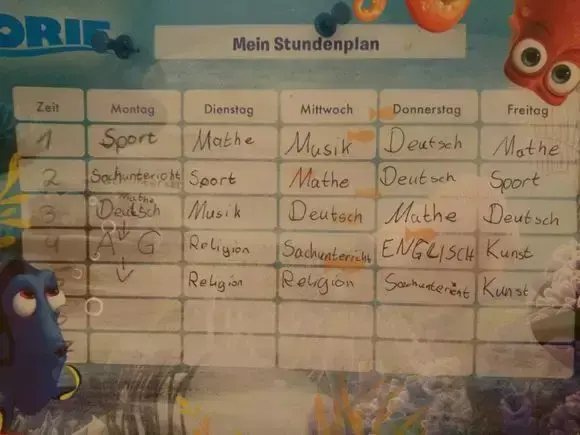 DORIE
Mein Stundenplan
Zeit Montag Dienstag Mittwoch Donnerstag Freitag
1 Sport Mathe Musik Deutsch Mathe
2 Sachuntericht Sport Mathe Deutsch Sport
Mathe
3 Deutsch Musik Deutsch Mathe Deutsch
4 A G Religion Sachunterricht ENGLISCH Kunst
Religion Religion Sachunterricht Kunst